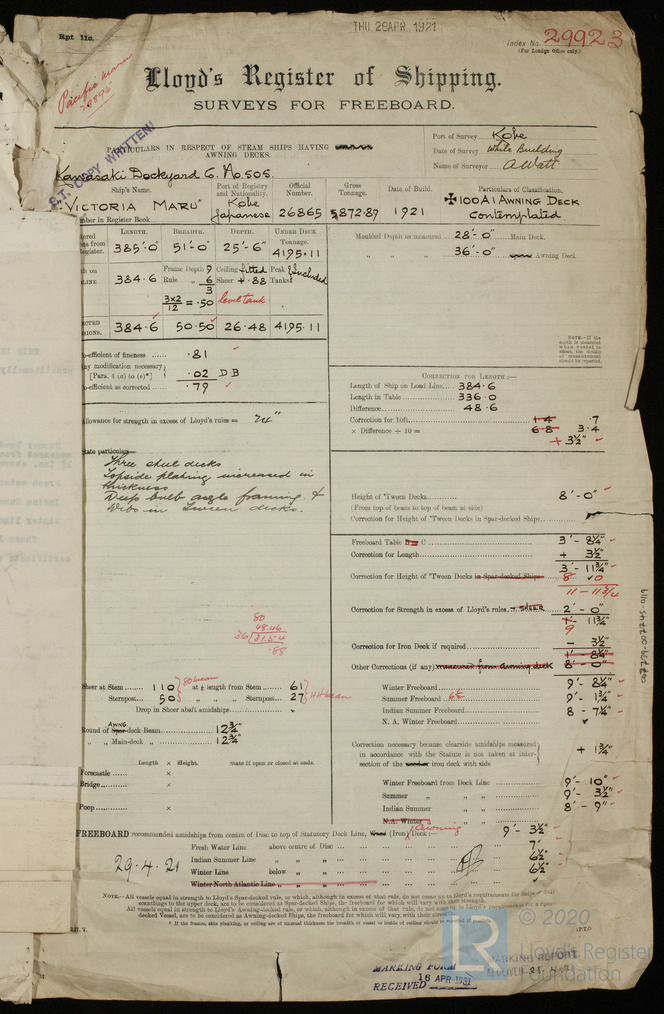 THU. 28 APR. 1921
Rpt 11c.
Index No. 29923
(For London Office only.)
Pacific Maru
Lloyd's Register of Shipping.
SURVEYS FOR FREEBOARD.
PARTICULARS IN RESPECT OF STEAM SHIPS HAVING
AWNING DECKS.
COPY WRITTEN!
Port of Survey Kobe
Date of Survey While Building
Name of Surveyor A Watt
Kawasaki Dockyard Co. No. 505.
Ship's Name. Port of Registry and Nationality. Official Number. Gross Tonnage. Date of Build. Particulars of Classification.
"VICTORIA MARU" Kobe Japanese 26865 5872.89 1921 ✠ 100 A1 AWNING DECK Contemplated.
Number in Register Book
LENGTH. BREADTH. DEPTH. UNDER DECK Tonnage.
385'-0" 51'-0" 25'-6" 4195.11
384.6 Frame Depth 9 Ceiling fitted Peak Included
Rule 6 Sheer + .88 Tanks
3
3x2/12 = .50 level tank
384.6 50.50 26.48 4195.11
Moulded Depth as measured 28'-0" Main Deck.
" " " 36'-0" Awning Deck
NOTE.—If the depth is measured when vessel is afloat, the details of measurement should be reported.
Co-efficient of fineness .81
Any modification necessary [Para. 4 (a) to (e)*] .02 DB
Co-efficient as corrected .79
Allowance for strength in excess of Lloyd's rules = "24"
State particulars
Three steel decks
Topside plating increased in
thickness
Deep bulb angle framing &
Webs in Tween decks.
CORRECTION FOR LENGTH:—
Length of Ship on Load Line 384.6
Length in Table 336.0
Difference 48.6
Correction for 10ft. 1.4 .7
× Difference ÷ 10 = 6.8 3.4
+ 3½"
Height of 'Tween Decks 8'-0"
(From top of beam to top of beam at side)
Correction for Height of 'Tween Decks in Spar-decked Ships
Freeboard Table B C 3'-8¼"
Correction for Length + 3½"
3'-11¾"
Correction for Height of 'Tween Decks in Spar-decked Ships 8 0
11-11¾
Correction for Strength in excess of Lloyd's rules. + SHEER 2'-0"
1'-11¾"
9
Correction for Iron Deck if required - 3½"
1'-8¼"
Other Corrections (if any) measured from awning deck 8'-0"
80
48.46
36 31.54
.88
Sheer at Stem 110 80 mean at ⅛ length from Stem 61
Sternpost 50 " " " Sternpost 27 44 mean
Drop in Sheer abaft amidships
Round of Spar-deck Beam 12¾"
AWNG
" " Main-deck " 12¾"
Length × Height. State if open or closed at ends.
Forecastle ×
Bridge ×
Poop ×
Winter Freeboard 9'-8¼"
Summer Freeboard 6½ 9'-1¾"
Indian Summer Freeboard 8-7¼"
N. A. Winter Freeboard
Correction necessary because clearside amidships measured
in accordance with the Statute is not taken at inter-
section of the wood or iron deck with side + 1¾"
Winter Freeboard from Deck Line 9'-10"
Summer " " " 9'-3½"
Indian Summer " " 8'-9"
N.A. Winter
FREEBOARD recommended amidships from centre of Disc to top of Statutory Deck Line, Wood (Iron) awning Deck:— 9'-3½"
Fresh Water Line above centre of Disc 7"
Indian Summer Line " " 6½"
Winter Line below " 6½"
Winter North Atlantic Line " "
29.4.21
NOTE.—All vessels equal in strength to Lloyd's Spar-decked rule, or which, although in excess of that rule, do not come up to Lloyd's requirements for ships of full
scantlings to the upper deck, are to be considered as Spar-decked Ships, the freeboard for which will vary with their strength.
All vessels equal in strength to Lloyd's Awning-decked rule, or which, although in excess of that rule, do not
decked Vessel, are to be considered as Awning-decked Ships, the freeboard for which will vary with their strength
* If the frames, skin planking, or ceiling are of unusual thickness the breadth of vessel or depth of hold
P.T.O
© 2020
Lloyd's Register
Foundation
LR
MARKING FORM
RECEIVED 16 APR 1931
MARKING REPORT